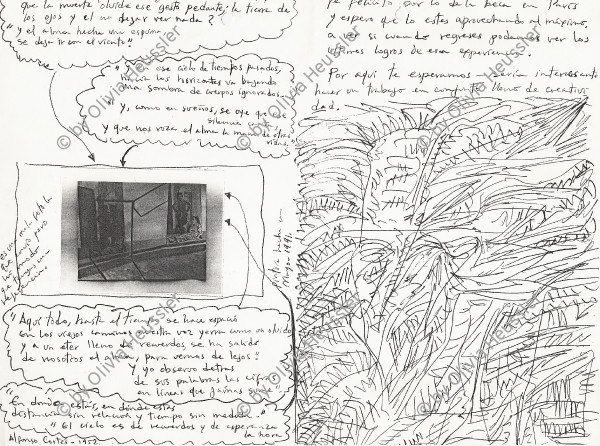 que la muerte olvide ese gesto pedante; la tierra de
los ojos y el no dejar ver nada?
"y el alma hecha una espuma
se deja ir con el viento."
en ese ciclo de tiempos pasados,
hacia los horizontes va bajando
una sombra de cuerpos ignorados
"Y, como en sueños, se oye que ese
silencio canta
y que nos roza el alma la mano de otras
vidas.
"Aquí todo, hasta el tiempo se hace espacio
en los viejos caminos nuestra voz yerra como un olvido
y a un éter lleno de recuerdos, se ha salido
de nosotros el alma, para vernos de lejos"
Y yo observo detrás
de sus palabras las cifras
en línea que jamás
En dónde estás, en dónde estás
distancia sin relación y tiempo sin medida
"El cielo es de recuerdos y de esperanza
la hora
Alfonso Cortés - 1952
Te felicito por lo de la beca en París
y espero que lo estés aprovechando al máximo,
a ver si cuando regreses podamos ver los
últimos logros de esa experiencia.
Por aquí te esperamos - sería interesante
hacer un trabajo en conjunto lleno de creativi
dad.
© by Olivia Heussler